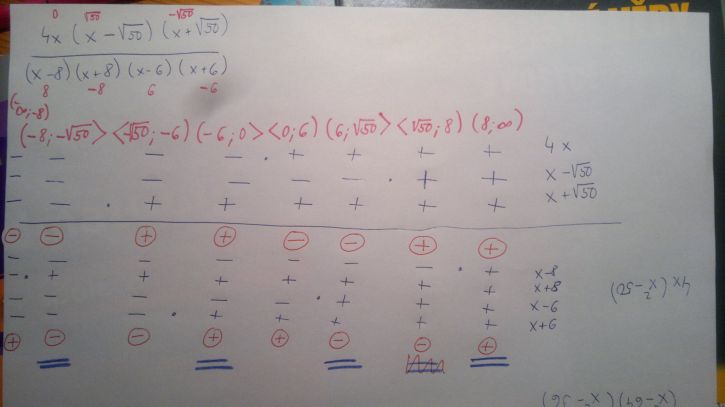 0 √50 -√50
4x (x - √50) (x + √50)
(x-8) (x+8) (x-6) (x+6)
8 -8 6 -6
(-∞;-8)
(-8;-√50> <-√50;-6) (-6;0> <0;6) (6;√50> <√50;8) (8;∞)
- - - - · + + + + 4x
- - - - - - · + + x-√50
- - · + + + + + + x+√50
⊖ ⊖ ⊕ ⊕ ⊖ ⊖ ⊕ ⊕
- - - - - - - · + x-8
- · + + + + + + + x+8
- - - - - · + + + x-6
- - - · + + + + + x+6
⊕ ⊖ ⊖ ⊕ ⊕ ⊖ ⊖ ⊕
4x (x²-50)
(x²-64) (x²-36)